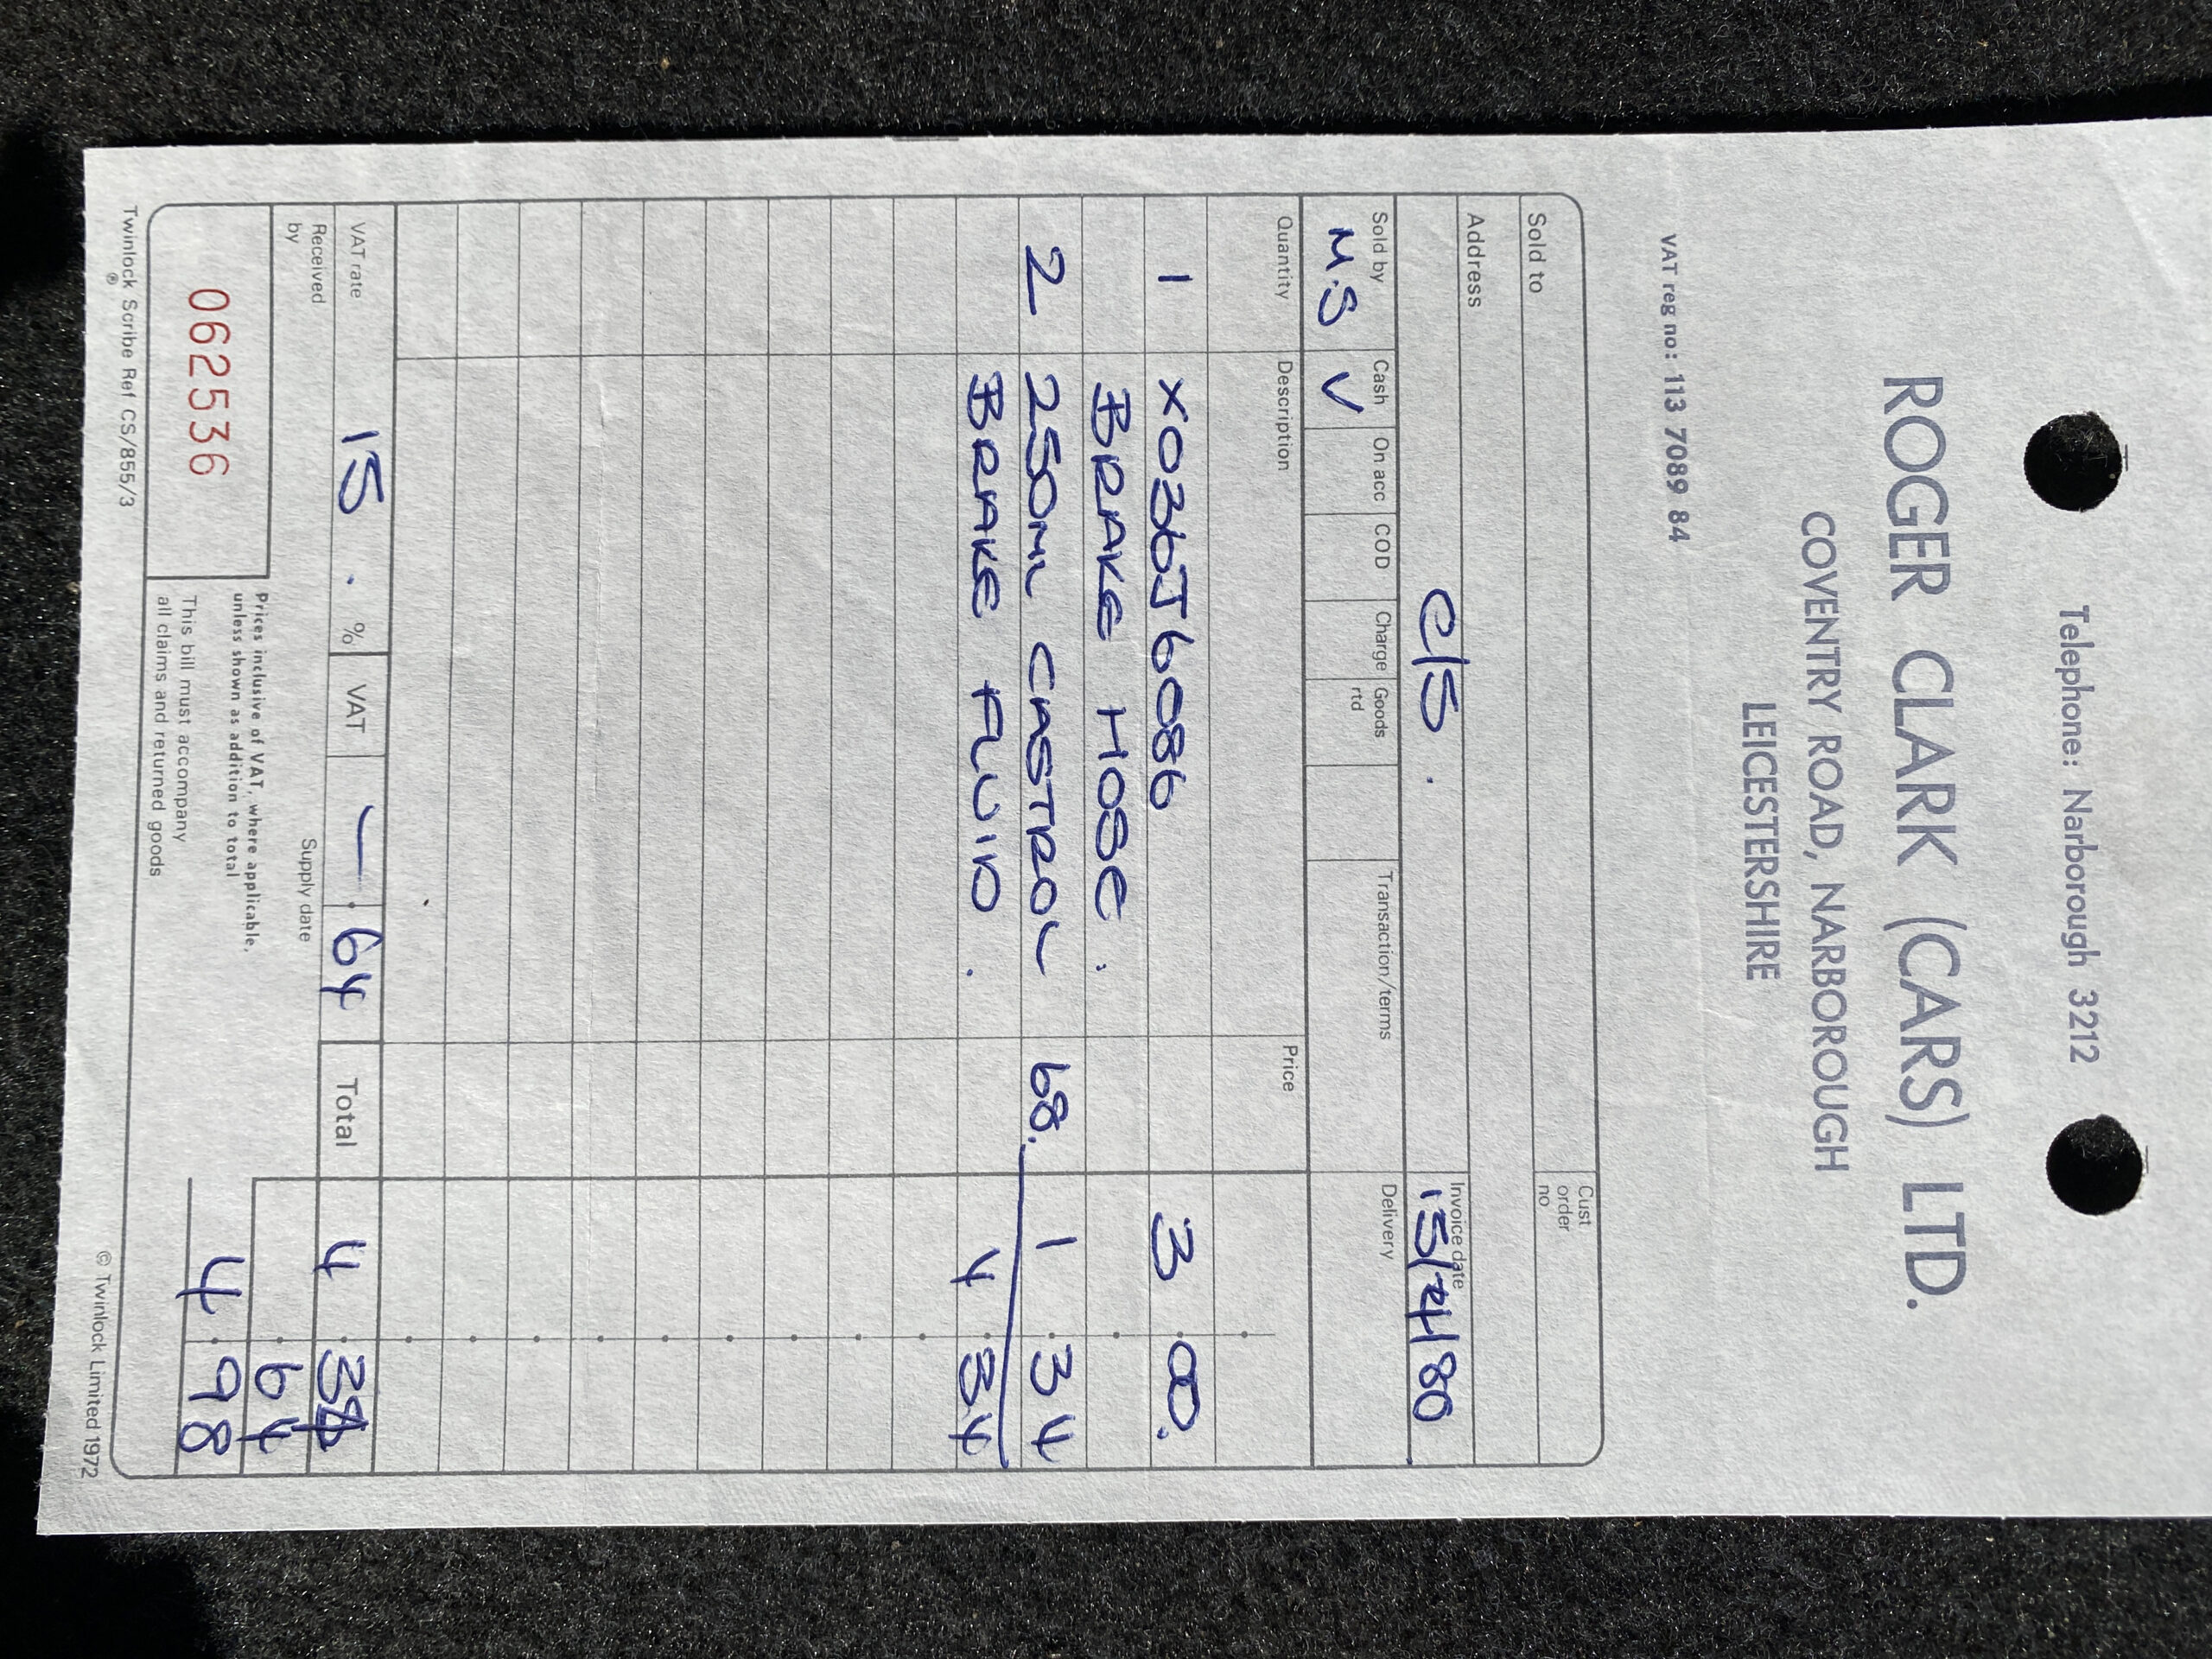 Telephone: Narborough 3212
ROGER CLARK (CARS) LTD.
COVENTRY ROAD, NARBOROUGH
LEICESTERSHIRE
VAT reg no: 113 7089 84
Sold to
Cust order no
Address
C/S.
Invoice date
15/4/80
Sold by Cash On acc COD Charge Goods rtd Transaction/terms Delivery
M.S V
Quantity Description Price
1 X036J6086 3.00.
BRAKE HOSE.
2 250ML CASTROL 68. 1.34
BRAKE FLUID. 4.34
VAT rate 15.% VAT —.64 Total 4.34
Received by
Supply date
.64
4.98
062536
Prices inclusive of VAT, where applicable,
unless shown as addition to total
This bill must accompany
all claims and returned goods
Twinlock Scribe Ref CS/855/3
®
© Twinlock Limited 1972